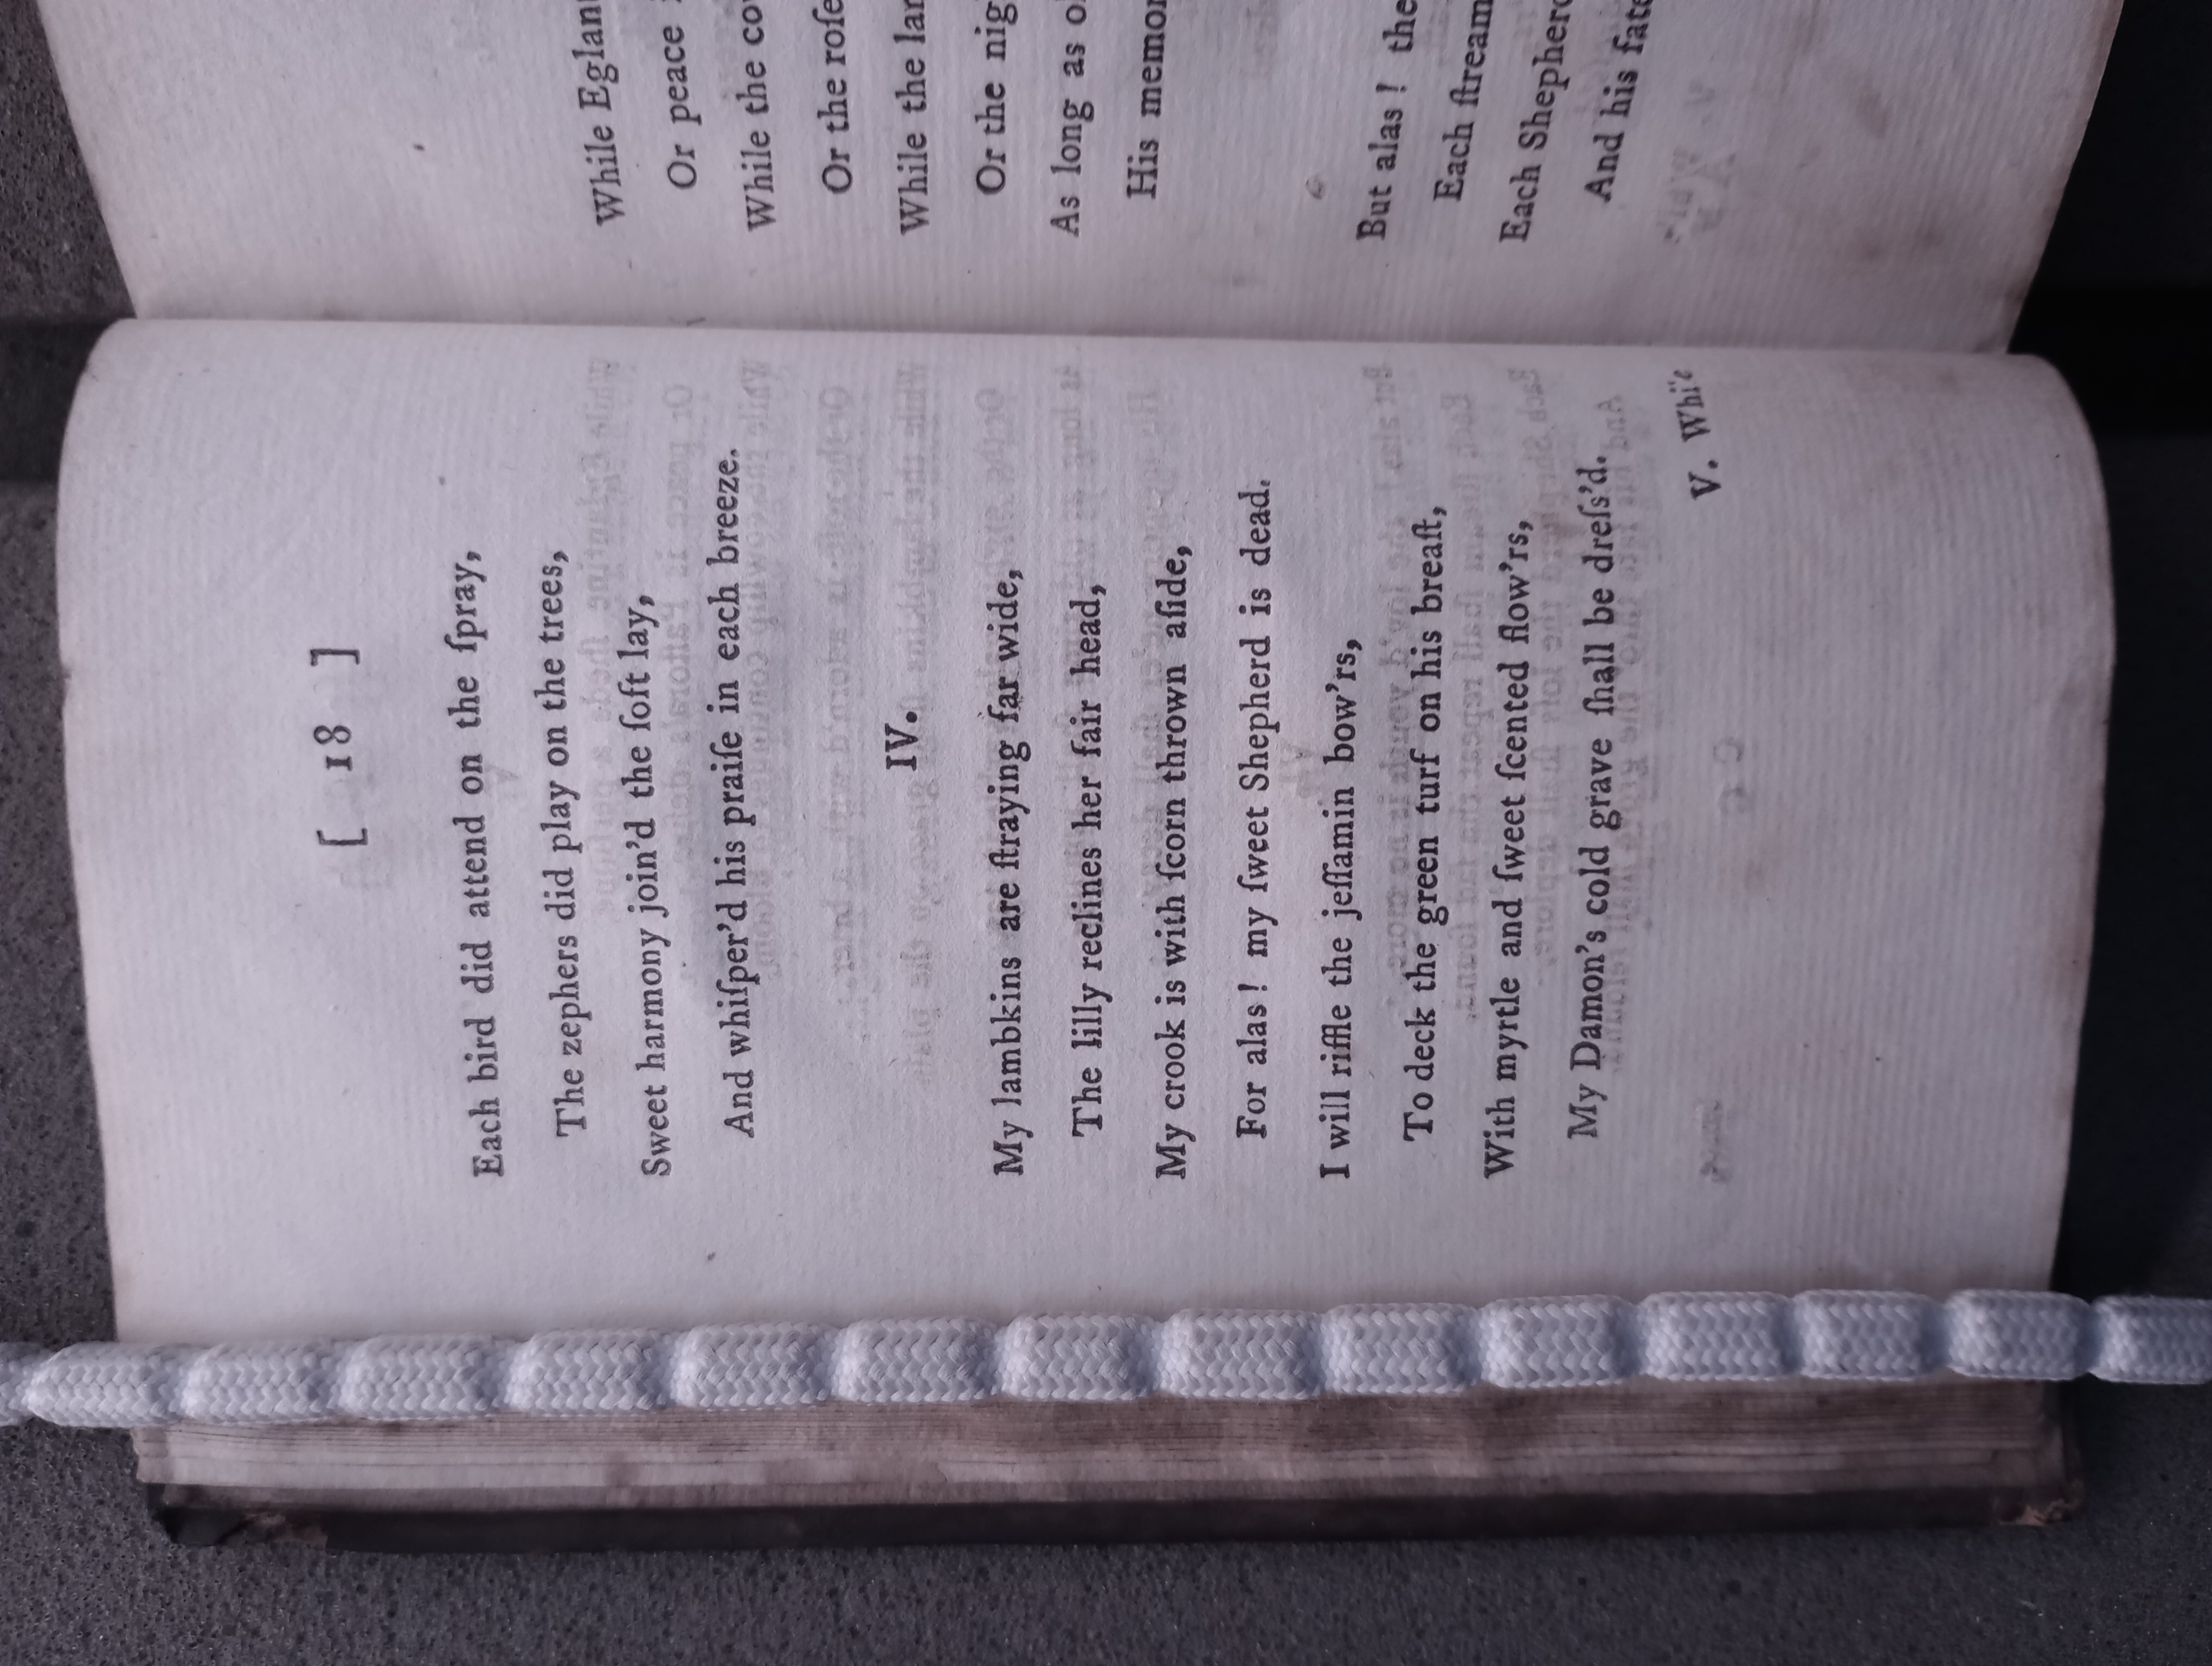 [ 18 ]
Each bird did attend on the ſpray,
The zephers did play on the trees,
Sweet harmony join'd the ſoft lay,
And whiſper'd his praiſe in each breeze.
IV.
My lambkins are ſtraying far wide,
The lilly reclines her fair head,
My crook is with ſcorn thrown aſide,
For alas! my ſweet Shepherd is dead.
I will riffle the jeſſamin bow'rs,
To deck the green turf on his breaſt,
With myrtle and ſweet ſcented flow'rs,
My Damon's cold grave ſhall be dreſs'd.
V. While
While Eglan
Or peace
While the co
Or the roſe
While the la
Or the nig
As long as o
His memo
But alas! the
Each ſtream
Each Shepher
And his fat